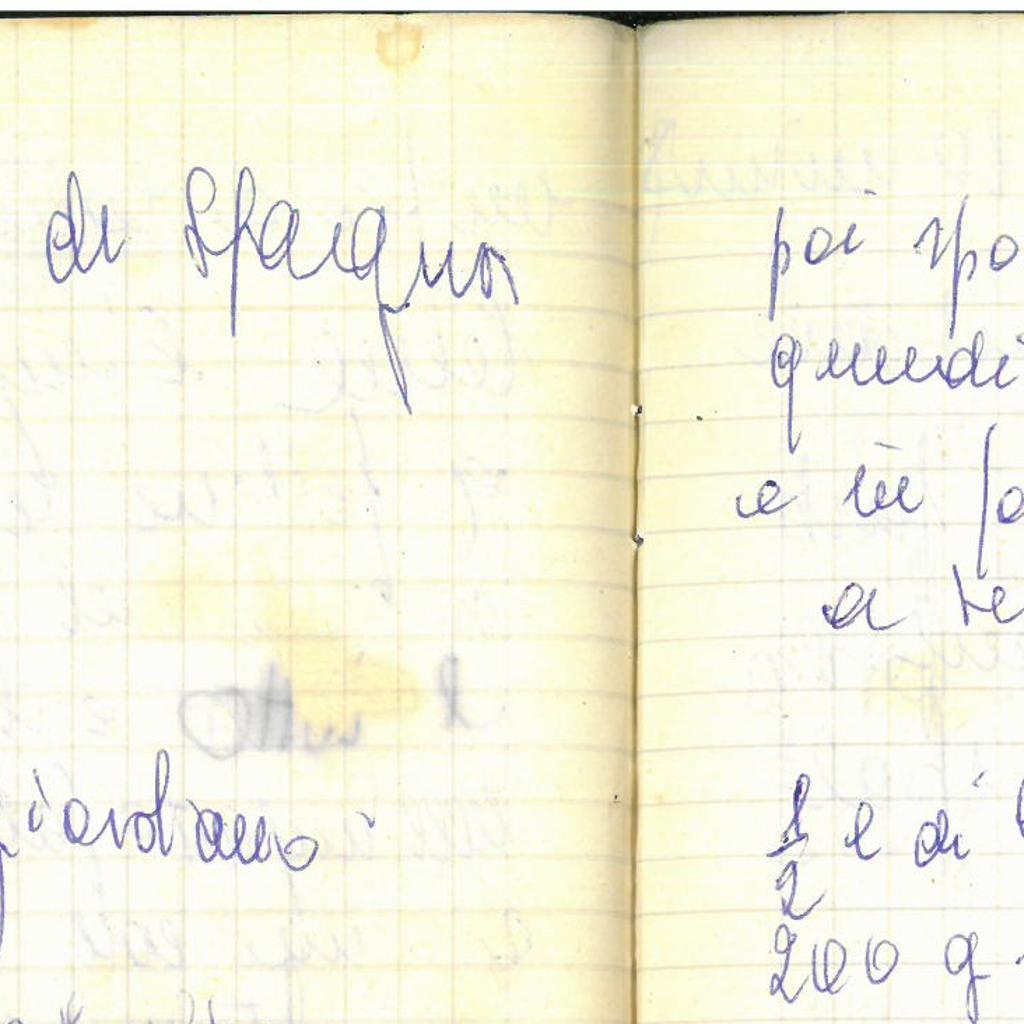 di Spagna
giardiano
poi spo
quindi
e in fo
a te
1/2 l di
200 g